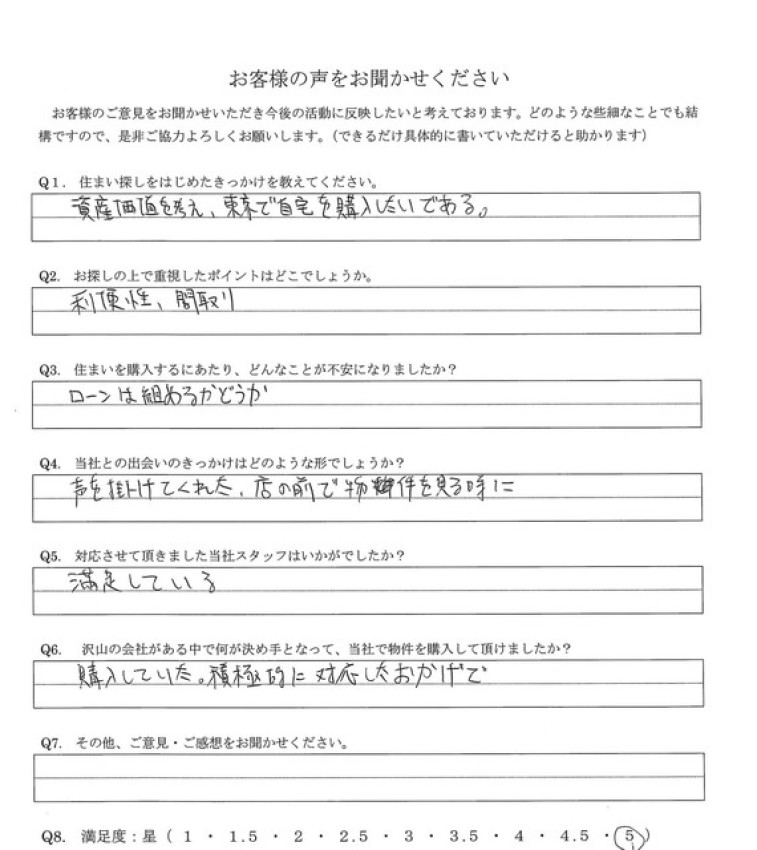 お客様の声をお聞かせください
お客様のご意見をお聞かせいただき今後の活動に反映したいと考えております。どのような些細なことでも結
構ですので、是非ご協力よろしくお願いします。（できるだけ具体的に書いていただけると助かります）
Q1. 住まい探しをはじめたきっかけを教えてください。
資産価値を考え、東京で自宅を購入したいである。
Q2. お探しの上で重視したポイントはどこでしょうか。
利便性、間取り
Q3. 住まいを購入するにあたり、どんなことが不安になりましたか？
ローンは組めるかどうか
Q4. 当社との出会いのきっかけはどのような形でしょうか？
声を掛けてくれた、店の前で物件を見る時に
Q5. 対応させて頂きました当社スタッフはいかがでしたか？
満足している
Q6. 沢山の会社がある中で何が決め手となって、当社で物件を購入して頂けましたか？
購入していた。積極的に対応したおかげで
Q7. その他、ご意見・ご感想をお聞かせください。
Q8. 満足度：星（ 1 ・ 1.5 ・ 2 ・ 2.5 ・ 3 ・ 3.5 ・ 4 ・ 4.5 ・ 5 ）